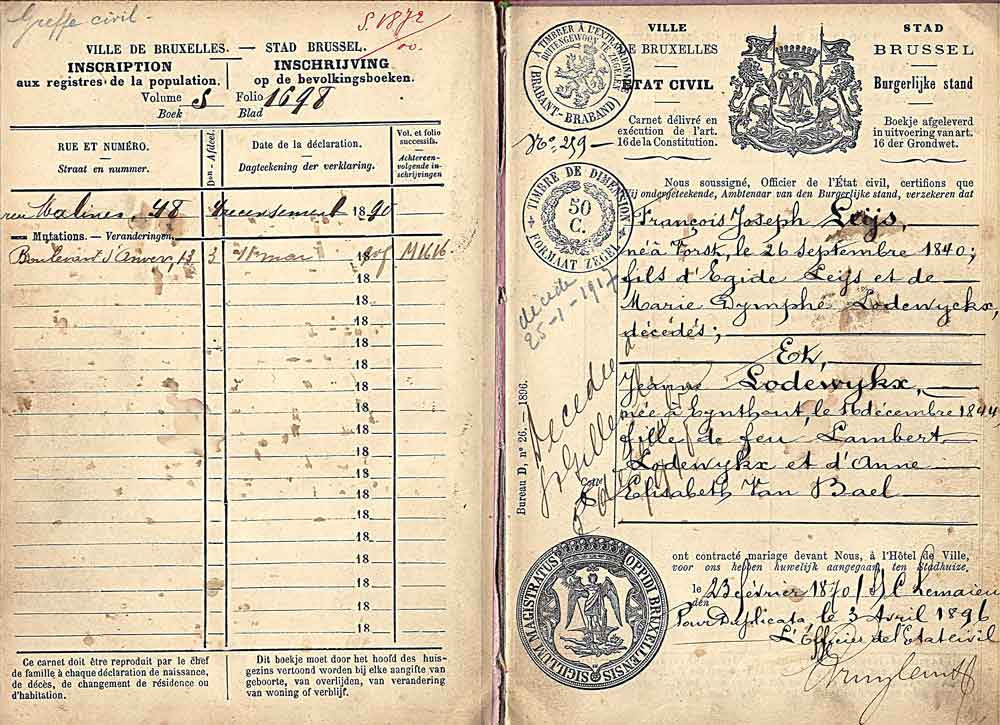 Greffe civil.
S. 1872
VILLE DE BRUXELLES. — STAD BRUSSEL.
INSCRIPTION
aux registres de la population.
INSCHRIJVING
op de bevolkingsboeken.
Volume S Folio 1698
Boek Blad
RUE ET NUMÉRO.
Straat en nummer.
Don - Afdeel.
Date de la déclaration.
Dagteekening der verklaring.
Vol. et folio
successifs.
Achtereen-
volgende in-
schrijvingen
rue Malines, 48 Recensement 1890
Mutations. — Veranderingen.
Boulevard d'Anvers, 13 3 mai 18 M1616
18
18
18
18
18
18
18
18
18
18
18
18
18
Ce carnet doit être reproduit par le chef
de famille à chaque déclaration de naissance,
de décès, de changement de résidence ou
d'habitation.
Dit boekje moet door het hoofd des huis-
gezins vertoond worden bij elke aangifte van
geboorte, van overlijden, van verandering
van woning of verblijf.
A TIMBRER À L'EXTRAORDINAIRE
BUITENGEWOON TE ZEGELEN
BRABANT-BRABAND
No. 259
TIMBRE DE DIMENSION
50
C.
FORMAAT ZEGEL
VILLE
DE BRUXELLES
ÉTAT CIVIL
Carnet délivré en
exécution de l'art.
16 de la Constitution.
STAD
BRUSSEL
Burgerlijke stand
Boekje afgeleverd
in uitvoering van art.
16 der Grondwet.
Nous soussigné, Officier de l'État civil, certifions que
Wij ondergeteekende, Ambtenaar van den Burgerlijke stand, verzekeren dat
François Joseph Leijs,
né à , le 26 septembre 1840;
fils d'Egide Leijs et de
Marie Dymphe Lodewyckx,
décédés;
Et,
Jeanne Lodewykx,
née à , le 16 décembre 1844
fille de feu Lambert
Lodewykx et d'Anne
Elisabeth Van Bael
décédé
25-1-1917
Décédée à
Bureau D, n° 26. — 1896.
SIGILLUM MAGISTRATUS OPPIDI BRUXELLENSIS
ont contracté mariage devant Nous, à l'Hôtel de Ville,
voor ons hebben huwelijk aangegaan, ten Stadhuize,
le 23 février 1870
den
Pour Duplicata, le 3 Avril 1896
L'Officier de l'Etat civil